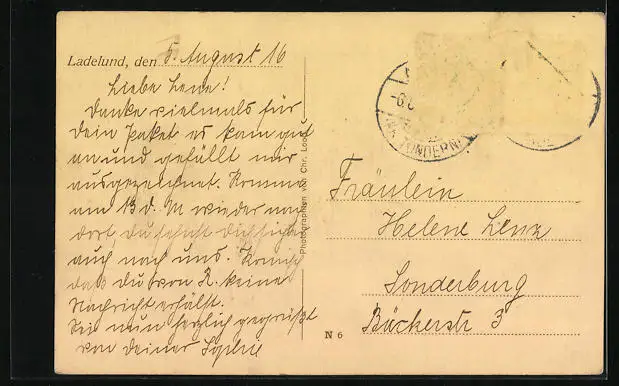 Ladelund, den 5. August 16
Liebe Lene!
Danke vielmals für
Dein Paket es kam gut
an und gefällt mir
ausgezeichnet. Komme
am 13 d. M wieder nach
dort, du sehnst dich sicher
auch nach uns. Komisch
daß Du von L. keine
Nachricht erhälst.
Sei nun herzlich gegrüßt
von deiner Sophie
Photographien von Chr. Loor
N 6
TONDERN
Fräulein
Helene Lenz
Sonderburg
Bäckerstr 3